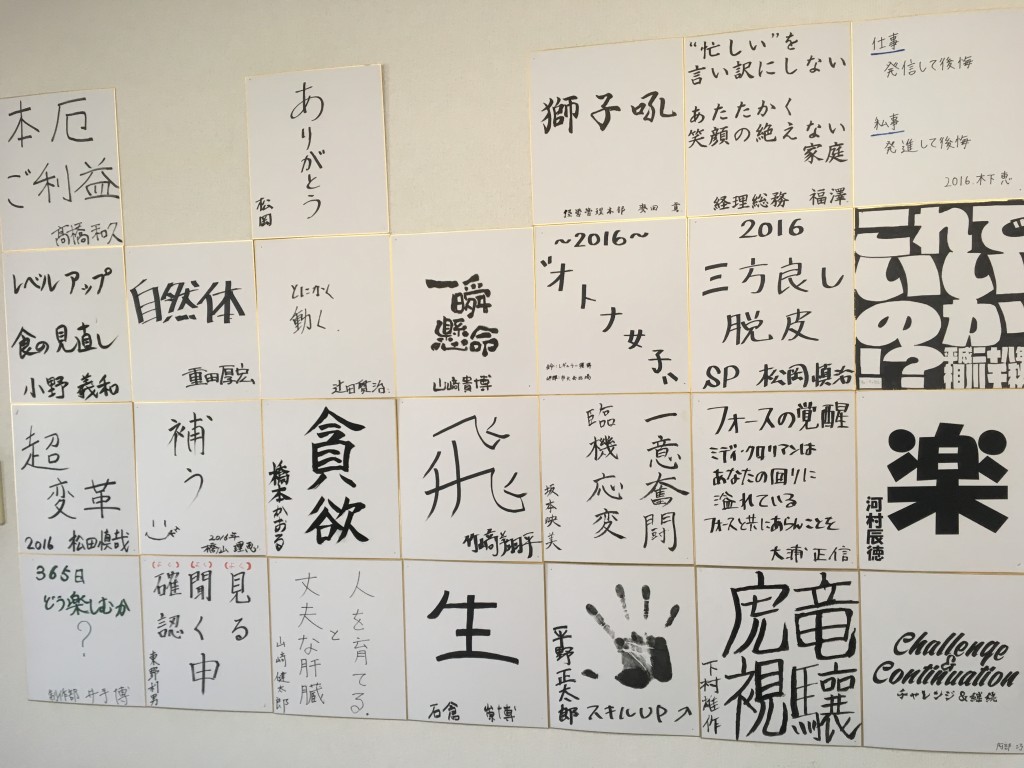 本厄
ご利益
髙橋和久
ありがとう
松岡
獅子吼
経営管理本部 奥田
“忙しい”を
言い訳にしない
あたたかく
笑顔の絶えない
家庭
経理総務 福澤
仕事
発信して後悔
私事
発進して後悔
2016.木下 恵
レベルアップ
食の見直し
小野 義和
自然体
重田厚宏
とにかく
動く.
辻田賢治
一瞬
懸命
山崎貴博
～2016～
“オトナ女子”
2016
三方良し
脱皮
SP 松岡慎治
これで
いいの
のか
!?
平成二十八年
超
変革
2016 松田慎哉
補う
2016年
橋山 理恵
貪欲
橋本かおる
飛
一意奮闘
臨機応変
坂本映美
フォースの覚醒
ミディ・クロリアンは
あなたの回りに
溢れている
フォースと共にあらんことを
大浦 正信
楽
河村辰徳
365日
どう楽しむか
?
制作部 井手 博
(よく)見る
(よく)聞く
(よく)確認
申
東野利男
人を育てる.
と
丈夫な肝臓
山崎健太郎
生
石倉 崇博
平野正太郎
スキルUP↗
竜驤
虎視
下村雄作
Challenge
&
Continuation
チャレンジ&継続